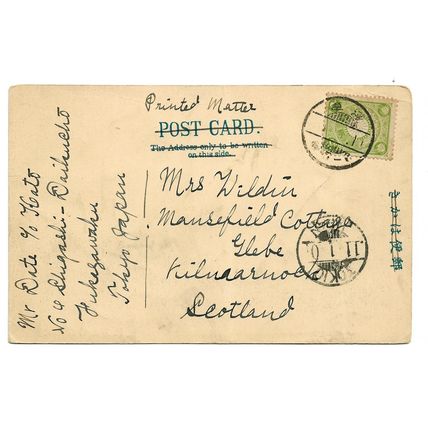 Printed Matter
POST CARD.
The Address only to be written
on this side.
Mrs Wildin
Mansefield Cottage
Glebe
Kilnaarnock
Scotland
Mr Date c/o Kato
No 4 Higashi-Daikucho
Fukagawaku
Tokyo Japan
きかは便郵
11.1.0